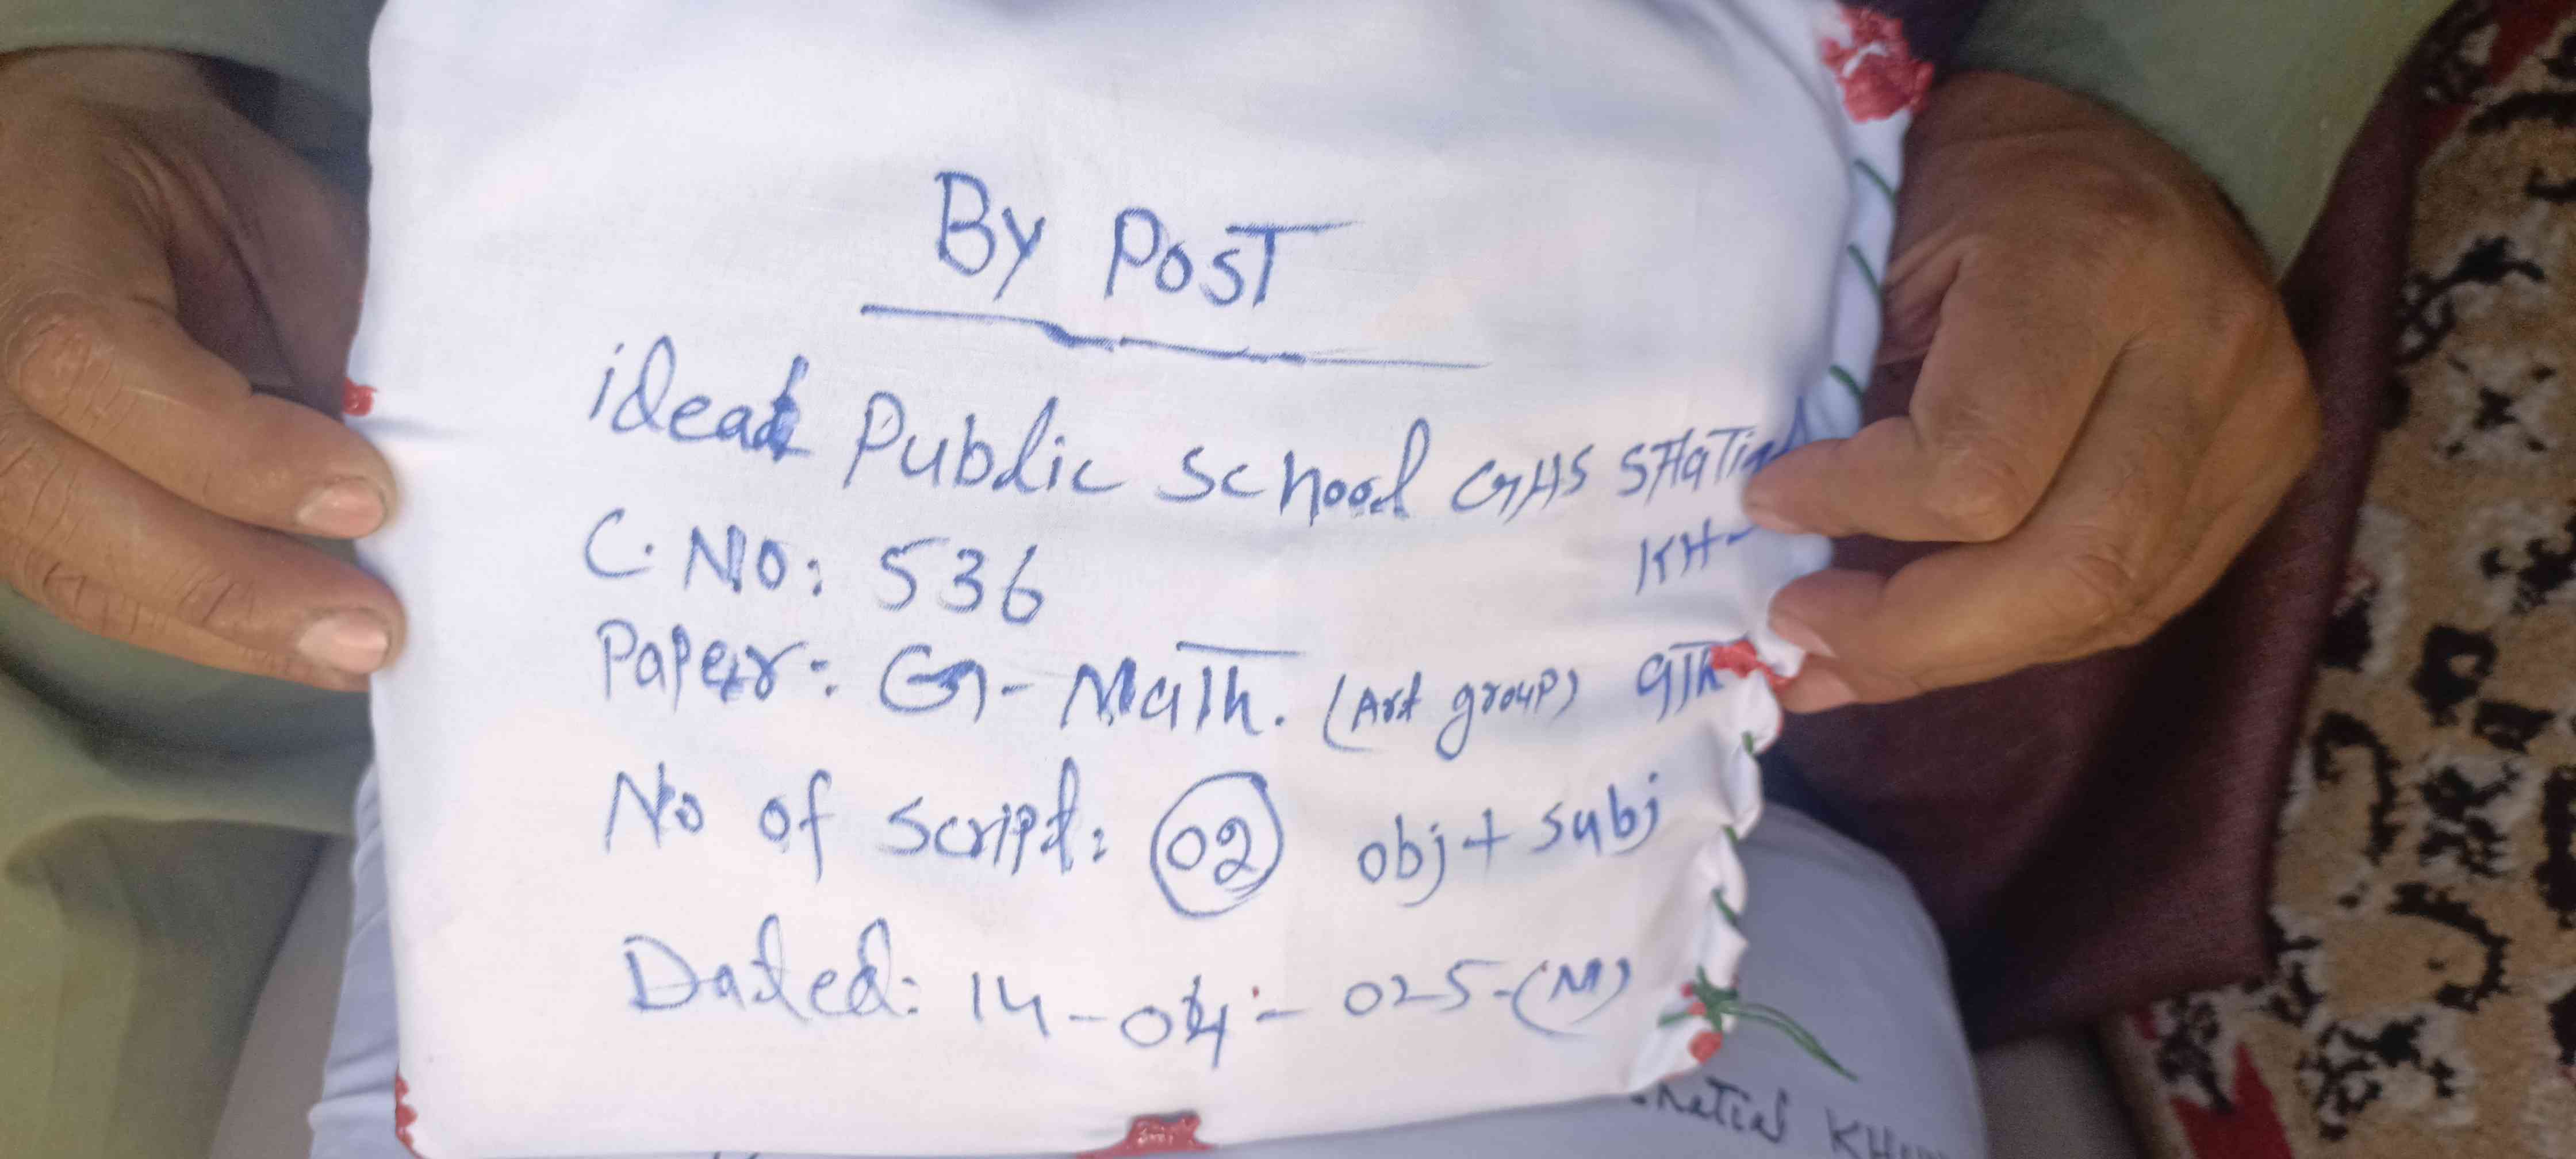 By Post
ideal Public School GHS
C. No: 536
KH-
Paper: G-Math. (Art group) 9Th
No of Script: 02 obj + subj
Dated: 14-04-025-(M)